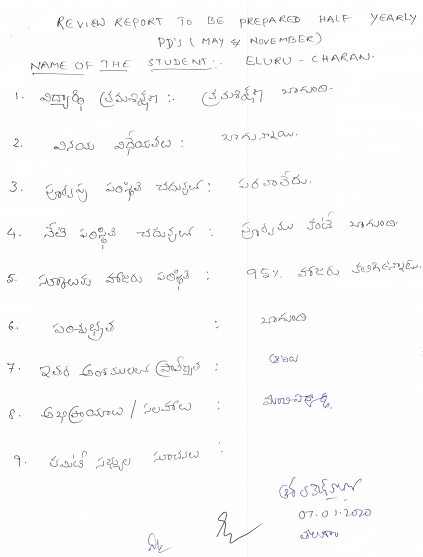 REVIEW REPORT TO BE PREPARED HALF YEARLY
PD'S ( MAY & NOVEMBER)
NAME OF THE STUDENT:- ELURU - CHARAN.
1. విద్యార్థి క్రమశిక్షణ :. క్రమశిక్షణ బాగుంది.
2. వినయ విధేయతలు : బాగున్నాయి.
3. పూర్వపు పరిస్థితి చదువులో : పరవాలేదు.
4. నేటి పరిస్థితి చదువులో : పూర్వము కంటే బాగుంది.
5. స్కూలుకు హాజరు పరిస్థితి : 95% హాజరు కలిగివున్నాడు.
6. పరిశుభ్రత : బాగుంది
7. ఇతర అంశములలో ప్రావీణ్యత : ఆటలు
8. అభిప్రాయాలు / సలహాలు : మంచి విద్యార్థి.
9. కమిటీ సభ్యుల సూచనలు :
07.01.2020